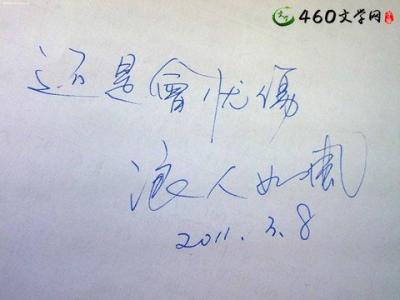 460文学网
还是會忧傷
浪人如風
2011.3.8